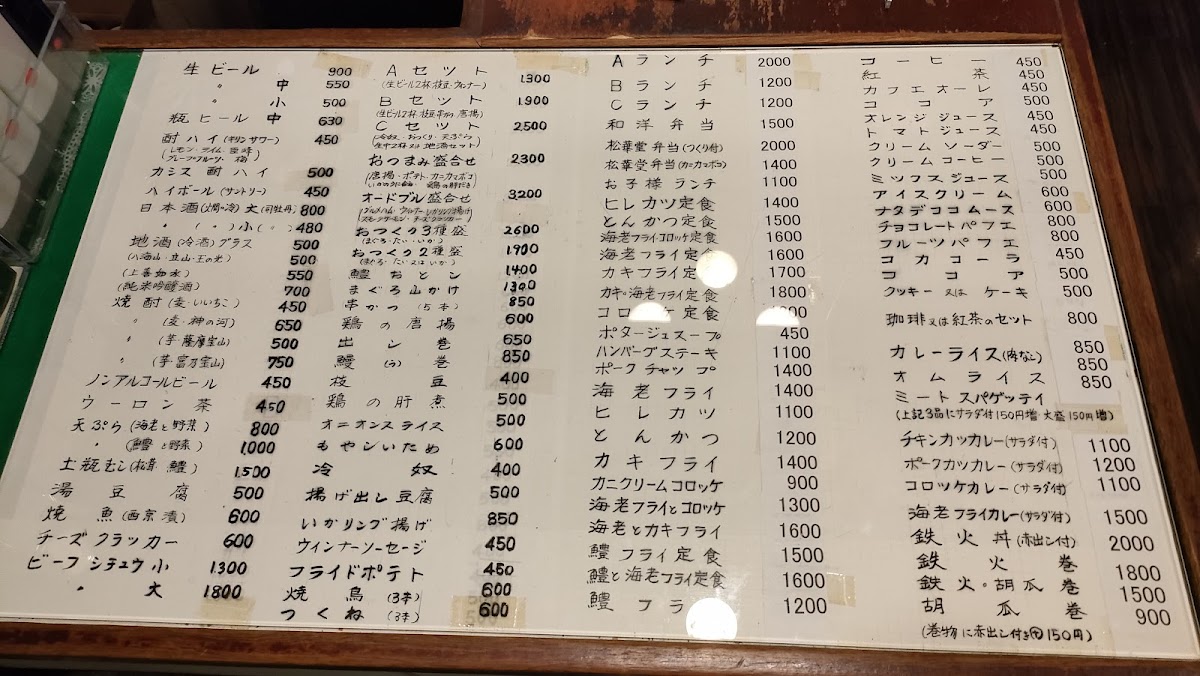 生ビール 900
〃 中 550
〃 小 500
瓶ビール 中 630
酎ハイ(キリンサワー) 450
(レモン・ライム・巨峰
グレープフルーツ・梅)
カシス酎ハイ 500
ハイボール(サントリー) 450
日本酒(燗・冷)大(司牡丹) 800
〃 (〃)小(〃) 480
地酒(冷酒)グラス 500
(八海山・立山・玉の光) 500
(上善如水) 550
(純米吟醸酒) 700
焼酎(麦・いいちこ) 450
〃 (麦・神の河) 650
〃 (芋・薩摩宝山) 500
〃 (芋・富乃宝山) 750
ノンアルコールビール 450
ウーロン茶 450
天ぷら(海老と野菜) 800
〃 (鱧と野菜) 1,000
土瓶むし(松茸 鱧) 1,500
湯豆腐 500
焼魚(西京漬) 600
チーズクラッカー 600
ビーフシチュウ小 1300
〃 大 1800
Aセット 1,300
(生ビール2杯・枝豆・ウィンナー)
Bセット 1,900
(生ビール2杯・枝豆・串かつ・唐揚)
Cセット 2,500
(冷奴・おつくり・天ぷら
生中2杯又は地酒セット)
おつまみ盛合せ 2300
(唐揚・ポテト・カニカマボコ
鶏の肝だき)
オードブル盛合せ 3,200
スモークサーモン・チーズクラッカー)
おつくり3種盛 2600
(まぐろ・たい・いか)
おつくり2種盛 1,900
(まぐろ・たい又はいか)
鱧おとし 1,400
まぐろ山かけ 1300
串かつ(5本) 850
鶏の唐揚 600
出シ巻 650
鰻(う)巻 850
枝豆 400
鶏の肝煮 500
オニオンスライス 500
もやしいため 600
冷奴 400
揚げ出し豆腐 500
いかリング揚げ 850
ウインナーソーセージ 450
フライドポテト 450
焼鳥(3本) 600
つくね(3本) 600
Aランチ 2000
Bランチ 1200
Cランチ 1200
和洋弁当 1500
松華堂弁当(つくり付) 2000
松華堂弁当(カニカマボコ) 1400
お子様ランチ 1100
ヒレカツ定食 1400
とんかつ定食 1500
海老フライコロッケ定食 1600
海老フライ定食 1600
カキフライ定食 1700
カキ・海老フライ定食 1800
コロッケ定食
ポタージュスープ 450
ハンバーグステーキ 1100
ポークチャップ 1400
海老フライ 1400
ヒレカツ 1100
とんかつ 1200
カキフライ 1400
カニクリームコロッケ 900
海老フライとコロッケ 1300
海老とカキフライ 1600
鱧フライ定食 1500
鱧と海老フライ定食 1600
鱧フライ 1200
コーヒー 450
紅茶 450
カフェオーレ 450
ココア 500
オレンジジュース 450
トマトジュース 450
クリームソーダー 500
クリームコーヒー 500
ミックスジュース 500
アイスクリーム 600
ナタデココムース 600
チョコレートパフェ 800
フルーツパフェ 800
コカコーラ 450
ココア 500
クッキー又はケーキ 500
珈琲又は紅茶のセット 800
カレーライス(肉なし) 850
オムライス 850
ミートスパゲッティ 850
(上記3品にサラダ付150円増・大盛150円増)
チキンカツカレー(サラダ付) 1100
ポークカツカレー(サラダ付) 1200
コロッケカレー(サラダ付) 1100
海老フライカレー(サラダ付) 1500
鉄火丼(赤出し付) 2000
鉄火巻 1800
鉄火・胡瓜巻 1500
胡瓜巻 900
(巻物に赤出し付き 150円)